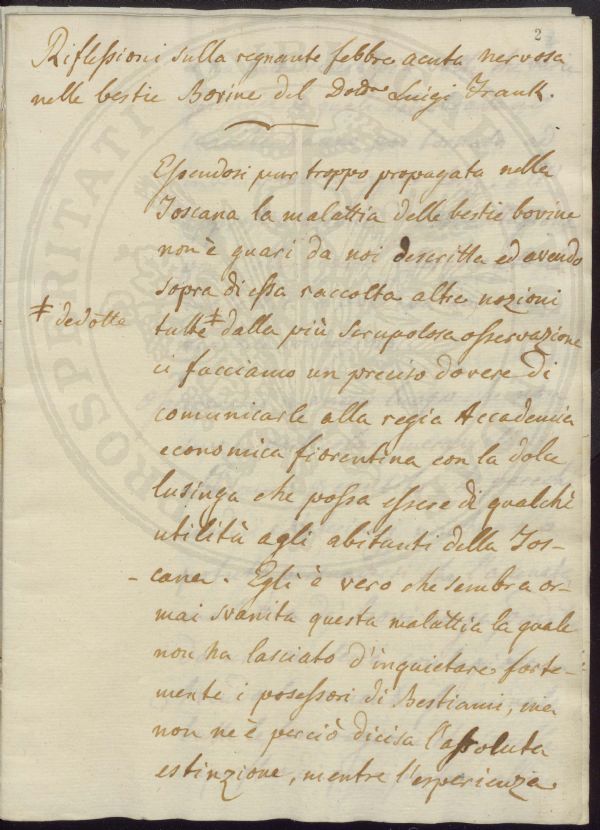 2
Riflessioni sulla regnante febbre acuta nervosa
nelle bestie Bovine del Dod.re Luigi Frank.
Essendosi pur troppo propagata nella
Toscana la malattia delle bestie bovine
non è guari da noi descritta ed avendo
sopra di essa raccolta altre nozioni
‡ dedotte
tutte ‡ dalla più scrupolosa osservazione
ci facciamo un preciso dovere di
comunicarle alla regia Accademia
economica fiorentina con la dolce
lusinga che possa essere di qualche
utilità agli abitanti della Tos-
- cana. Egli è vero che sembra or-
mai svanita questa malattia la quale
non ha lasciato d'inquietare forte-
mente i posessori di Bestiami, ma
non ne è perciò dicisa l'assoluta
estinzione, mentre l'esperienza
PROSPERITATI